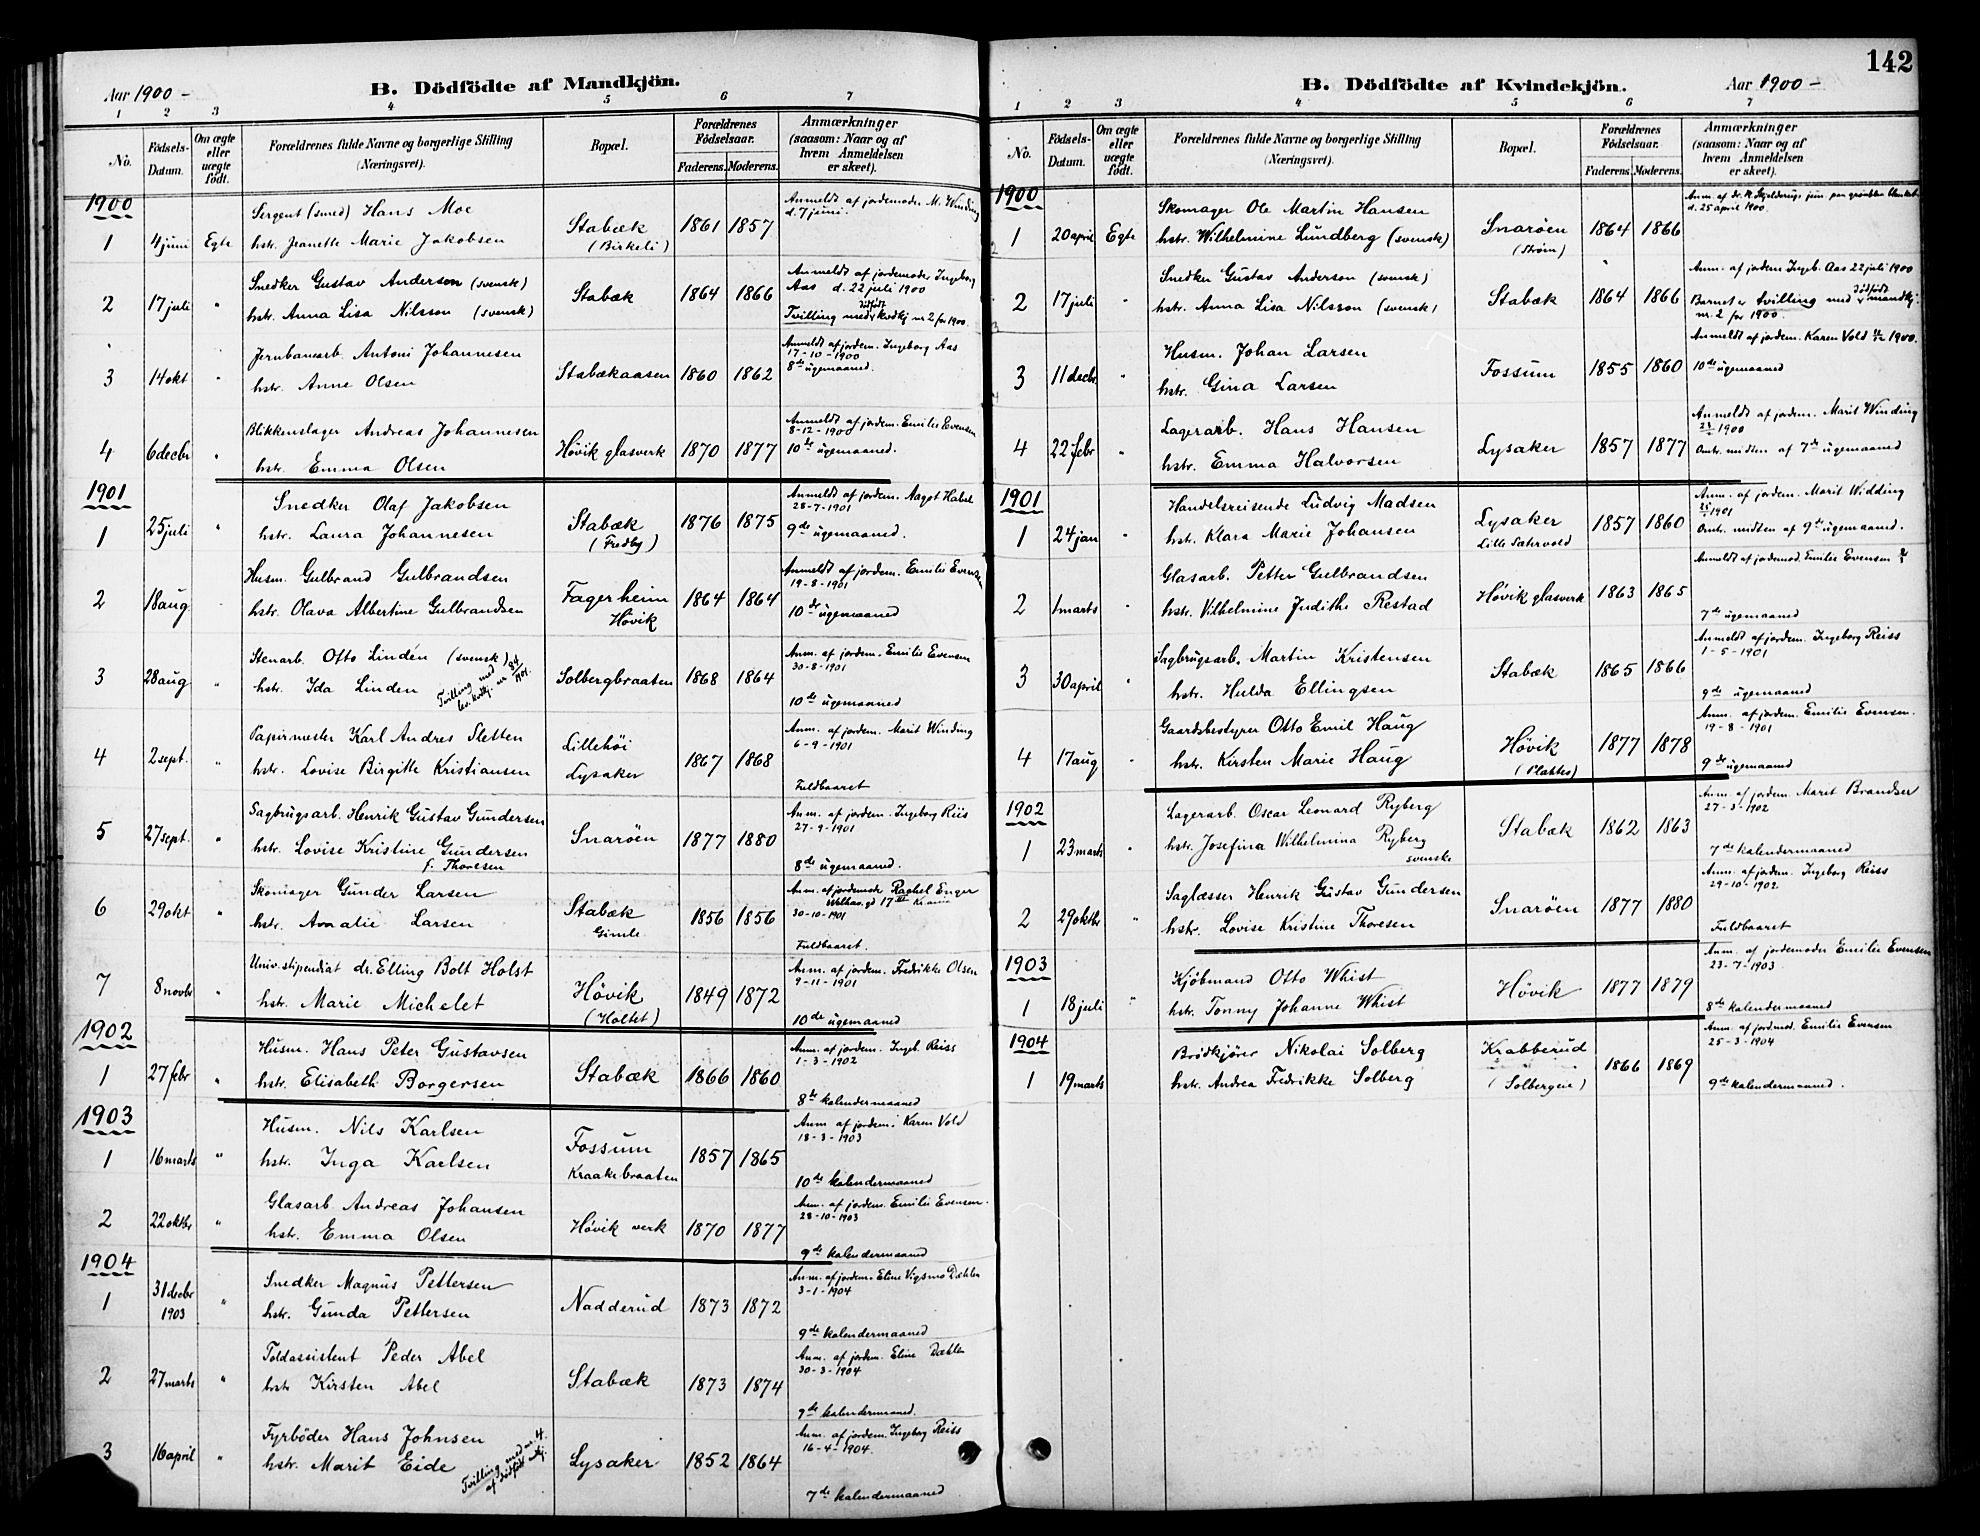 Aar 1900 –
B. Dödfödte af Mandkjön.
1 2 3 4 5 6 7
No.
Födsels-Datum.
Om ægte eller uægte födt.
Forældrenes fulde Navne og borgerlige Stilling (Næringsvei).
Bopæl.
Forældrenes Födselsaar.
Faderens. Moderens.
Anmærkninger (saasom: Naar og af hvem Anmeldelsen er skeet).
1900
Sergent (smed) Hans Moe
1 4 juni Egte hstr. Jeanette Marie Jakobsen
Stabæk (Birkeli) 1861 1857
Anmeldt af jordemoder M. Winding d. 7 juni.
Snedker Gustav Anderson (svensk)
2 17 juli " hstr. Anna Lisa Nilsson (svensk)
Stabæk 1864 1866
Anmeldt af jordemoder Ingeborg Aas d. 22 juli 1900
Tvilling med dödfödt kvdkj nr 2 for 1900.
Jernbanearb. Antoni Johannesen
3 14 okt " hstr. Anne Olsen
Stabækaasen 1860 1862
Anmeldt af jordem. Ingeborg Aas 17-10-1900
8de ugemaaned.
Blikkenslager Andreas Johannesen
4 6 decbr " hstr. Emma Olsen
Hövik glasverk 1870 1877
Anmeldt af jordem. Emilie Evensen 8-12-1900
10de ugemaaned.
1901
Snedker Olaf Jakobsen
1 25 juli " hstr. Laura Johannesen
Stabæk (Fredby) 1876 1875
Anmeldt af jordem. Aagot 28-7-1901
9de ugemaaned.
Husm. Gulbrand Gulbrandsen
2 18 aug hstr. Olava Albertine Gulbrandsen
Fagerheim Hövik 1864 1864
Anmeldt af jordem. Emilie Evensen 19-8-1901
10de ugemaaned
Stenarb. Otto Lindén (svensk)
3 28 aug " hstr. Ida Linden
Tvilling med lev. kvdkj. nr 84/1901.
Solbergbraaten 1868 1864
Anm. af jordem. Emilie Evensen 30-8-1901
10de ugemaaned
Papirmester Karl Andres Sletten
4 2 sept. " hstr. Lovise Birgitte Kristiansen
Lillehöi Lysaker 1867 1868
Anm. af jordem. Marit Winding 6-9-1901
Fuldbaaret
Sagbrugsarb. Henrik Gustav Gundersen
5 27 sept. " hstr. Lovise Kristine Gundersen f. Thoresen
Snaröen 1877 1880
Anm. af jordem. Ingeborg Riis 27-9-1901
8de ugemaaned.
Skomager Gunder Larsen
6 29 okt " hstr. Amalie Larsen
Stabæk Gimle 1856 1856
Anm. af jordemoder Rachel Enger 30-10-1901
Fuldbaaret.
Univ. stipendiat dr. Elling Bolt Holst
7 8 novbr " hstr. Marie Michelet
Hövik (Holtet) 1849 1872
Anm. af jordem. Fredrikke Olsen 9-11-1901
10de ugemaaned
1902
Husm. Hans Peter Gustavsen
1 27 febr " hstr. Elisabeth Borgersen
Stabæk 1866 1860
Anm. af jordem. Ingeb. Reiss 1-3-1902
8de kalendermaaned
1903
Husm. Nils Karlsen
1 16 marts " hstr. Inga Karlsen
Fossum Kraakebraaten 1857 1865
Anm af jordem. Karen Vold 18-3-1903
10de kalendermaaned
Glasarb. Andreas Johansen
2 22 oktbr " hstr. Emma Olsen
Hövik verk 1870 1877
Anm. af jordem. Emilie Evensen. 28-10-1903
9de kalendermaaned
1904
Snedker Magnus Pettersen
1 31 decbr 1903 " hstr. Gunda Pettersen
Nadderud 1873 1872
Anm. af jordem. Eline Vigsmo Dæhlen 3-1-1904
9de kalendermaaned
Toldassistent Peder Abel
2 27 marts " hstr Kirsten Abel
Stabæk 1873 1874
Anm. af jordem. Eline Dæhlen 30-3-1904
9de kalendermaaned.
Fyrböder Hans Johnsen
3 16 april " hstr. Marit Eide
Tvilling med nr. 4. af dödfödt
Lysaker 1852 1864
Anm. af jordem. Ingeborg Reiss 16-4-1904.
7de kalendermaaned
142
B. Dödfödte af Kvindekjön.
Aar 1900 –
1 2 3 4 5 6 7
No.
Födsels-Datum.
Om ægte eller uægte födt.
Forældrenes fulde Navne og borgerlige Stilling (Næringsvei).
Bopæl.
Forældrenes Födselsaar.
Faderens. Moderens.
Anmærkninger (saasom: Naar og af hvem Anmeldelsen er skeet).
1900
Skomager Ole Martin Hansen
1 20 april Egte hstr. Wilhelmine Lundberg (svensk)
Snaröen (Ström) 1864 1866
Anm af dr. K. Skjelderup jun d. 25 april 1900.
Snedker Gustav Anderson (svensk)
2 17 juli " hstr. Anna Lisa Nilsson (svensk)
Stabæk 1864 1866
Anm. af jordem Ingeb. Aas 22 juli 1900
Barnet er tvilling med dödfödt mandkj. nr. 2 for 1900.
Husm. Johan Larsen
3 11 decbr. " hstr. Gina Larsen
Fossum 1855 1860
Anmeldt af jordem. Karen Vold 1900.
10de ugemaaned
Lagerarb. Hans Hansen
4 22 febr " hstr. Emma Halvorsen
Lysaker 1857 1877
Anmeldt af jordem. Marit Winding 1900
Omtr. midten af 7de ugemaaned
1901
Handelsreisende Ludvig Madsen
1 24 jan " hstr. Klara Marie Johansen
Lysaker 1857 1860
Anm. af jordem. Marit Widding 1901
Omtr. midten af 9de ugemaaned.
Glasarb. Petter Gulbrandsen
2 1 marts " hstr. Vilhelmine Judithe Restad
Hövik glasverk 1863 1865
Anmeldt af jordemod. Emilie Evensen
7de ugemaaned
Sagbrugsarb. Martin Kristensen
3 30 april " hstr. Hulda Ellingsen
Stabæk 1865 1866
Anmeldt af jordem. Ingeborg Reiss 1-5-1901
9de ugemaaned
Gaardsbestyrer Otto Emil Haug
4 17 aug " hstr. Kirsten Marie Haug
Hövik 1877 1878
Anm. af jordem. Emilie Evensen. 19-8-1901
9de ugemaaned
1902
Lagerarb. Oscar Leonard Ryberg
1 23 marts " hstr. Josefina Wilhelmina Ryberg svenske
Stabæk 1862 1863
Anm. af jordem. Marit Brandser 27-3-1902
7de kalendermaaned
Saglæsser Henrik Gustav Gundersen
2 29 oktbr " hstr. Lovise Kristine Thoresen
Snaröen 1877 1880
Anm. af jordem. Ingeborg Reiss 29-10-1902
Fuldbaaret
1903
Kjöbmand Otto Whist
1 18 juli " hstr. Tonny Johanne Whist
Hövik 1877 1879
Anm. af jordemoder Emilie Evensen 23-7-1903
8de kalendermaaned
1904
Brödkjörer Nikolai Solberg
1 19 marts hstr. Andrea Fredrikke Solberg
Krabberud (Solbergeie) 1866 1869
Anm. af jordmod. Emilie Evensen 25-3-1904
9de kalendermaaned.